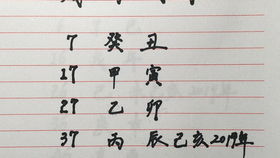 7 癸 丑
17 甲 寅
27 乙 卯
37 丙 辰 己亥2019年